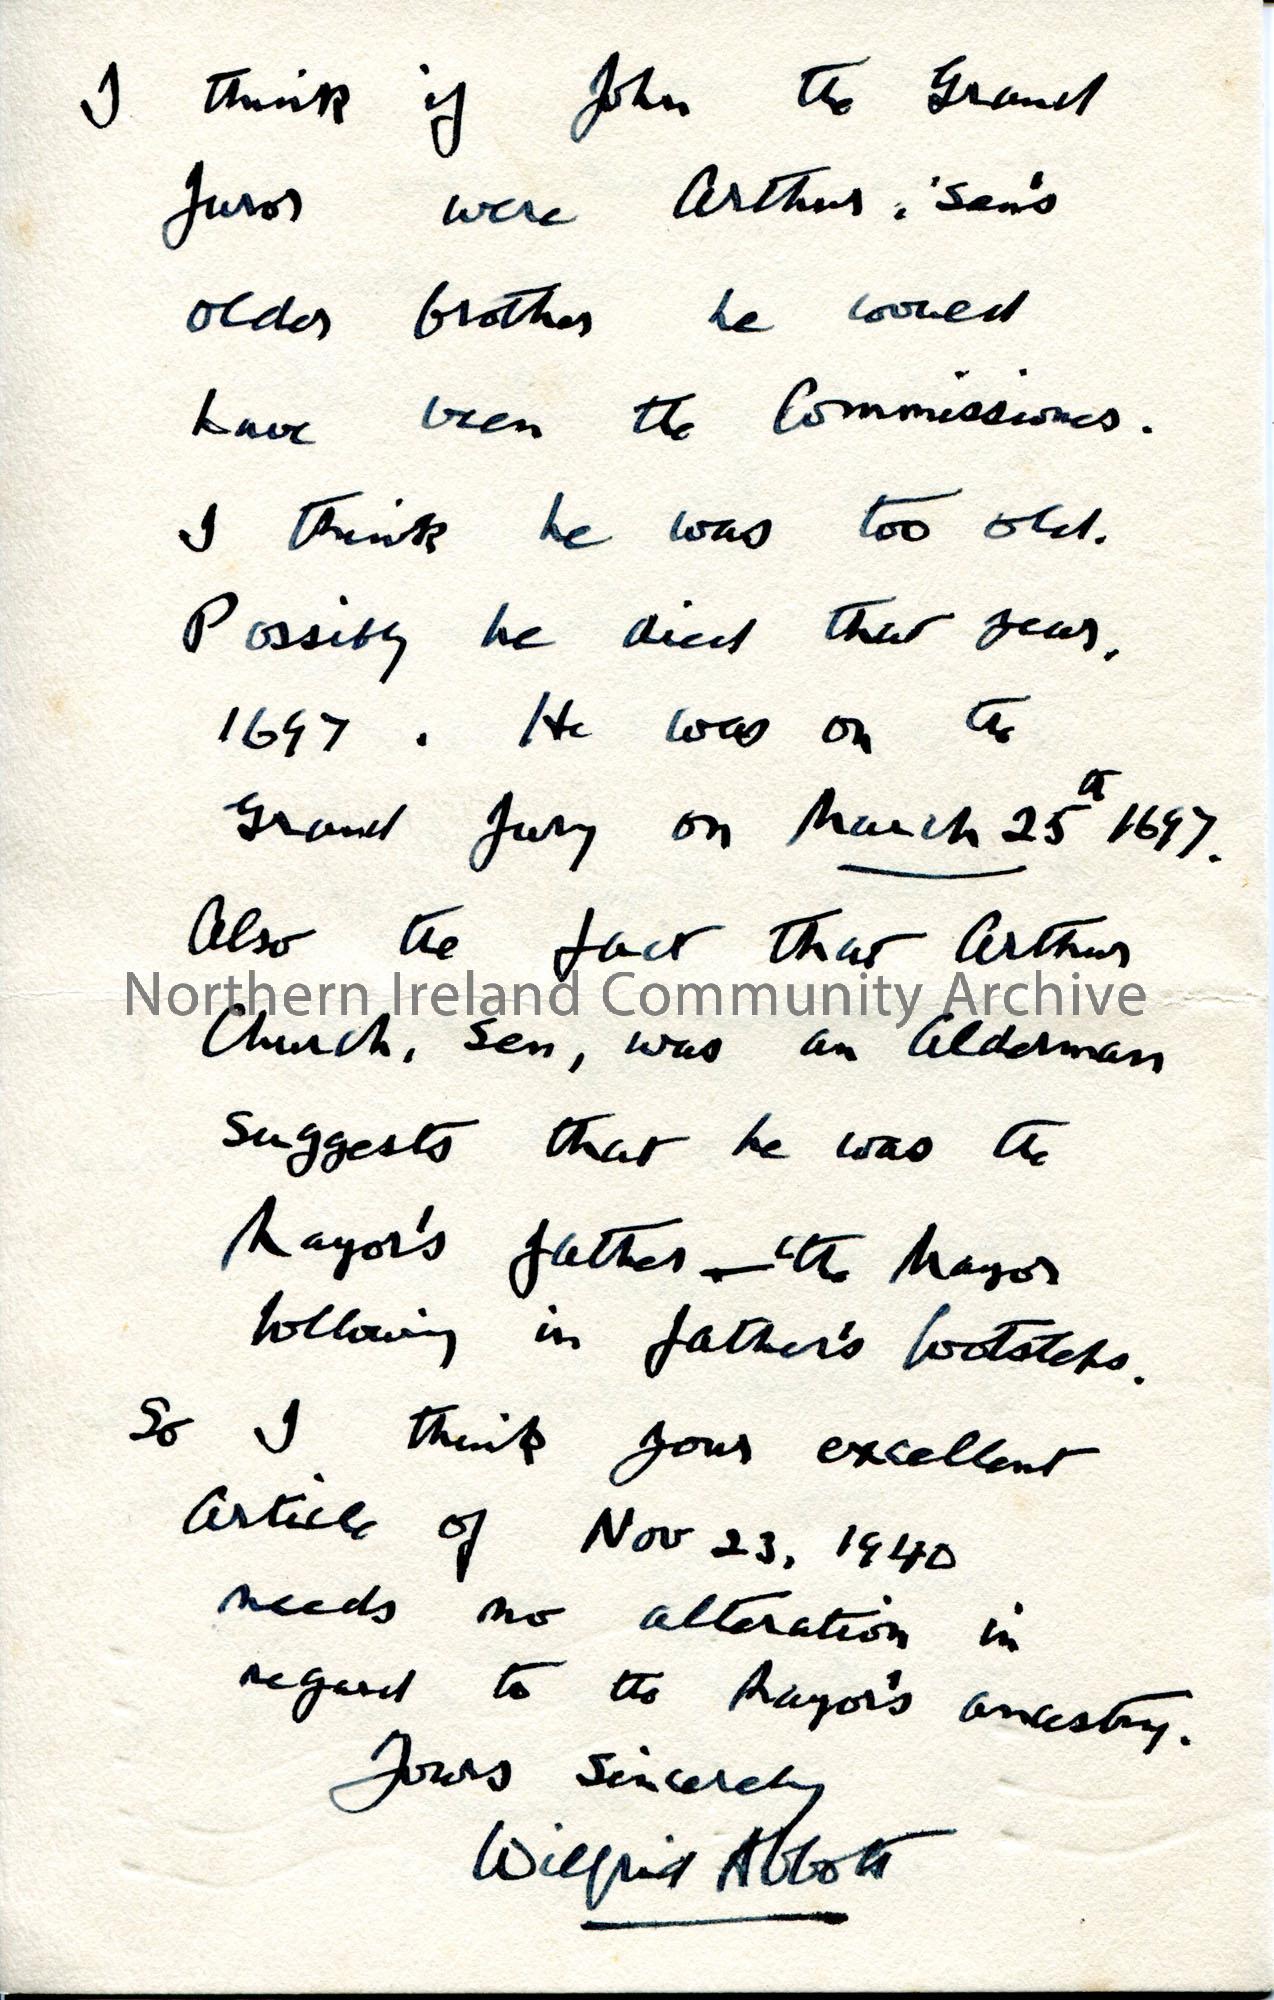 I think if John the Grand
Juror were Arthur, Sen's
older brother he would
have been the Commissioner.
I think he was too old.
Possibly he died that year,
1697. He was on the
Grand Jury on March 25th 1697.
Also the fact that Arthur
Northern Ireland Community Archive
Church, Sen, was an Alderman
suggests that he was the
Mayor's father — the Mayor
following in father's footsteps.
So I think your excellent
Article of Nov 23, 1940
needs no alteration in
regard to the Mayor's ancestry.
Yours sincerely
Wilfrid Abbott